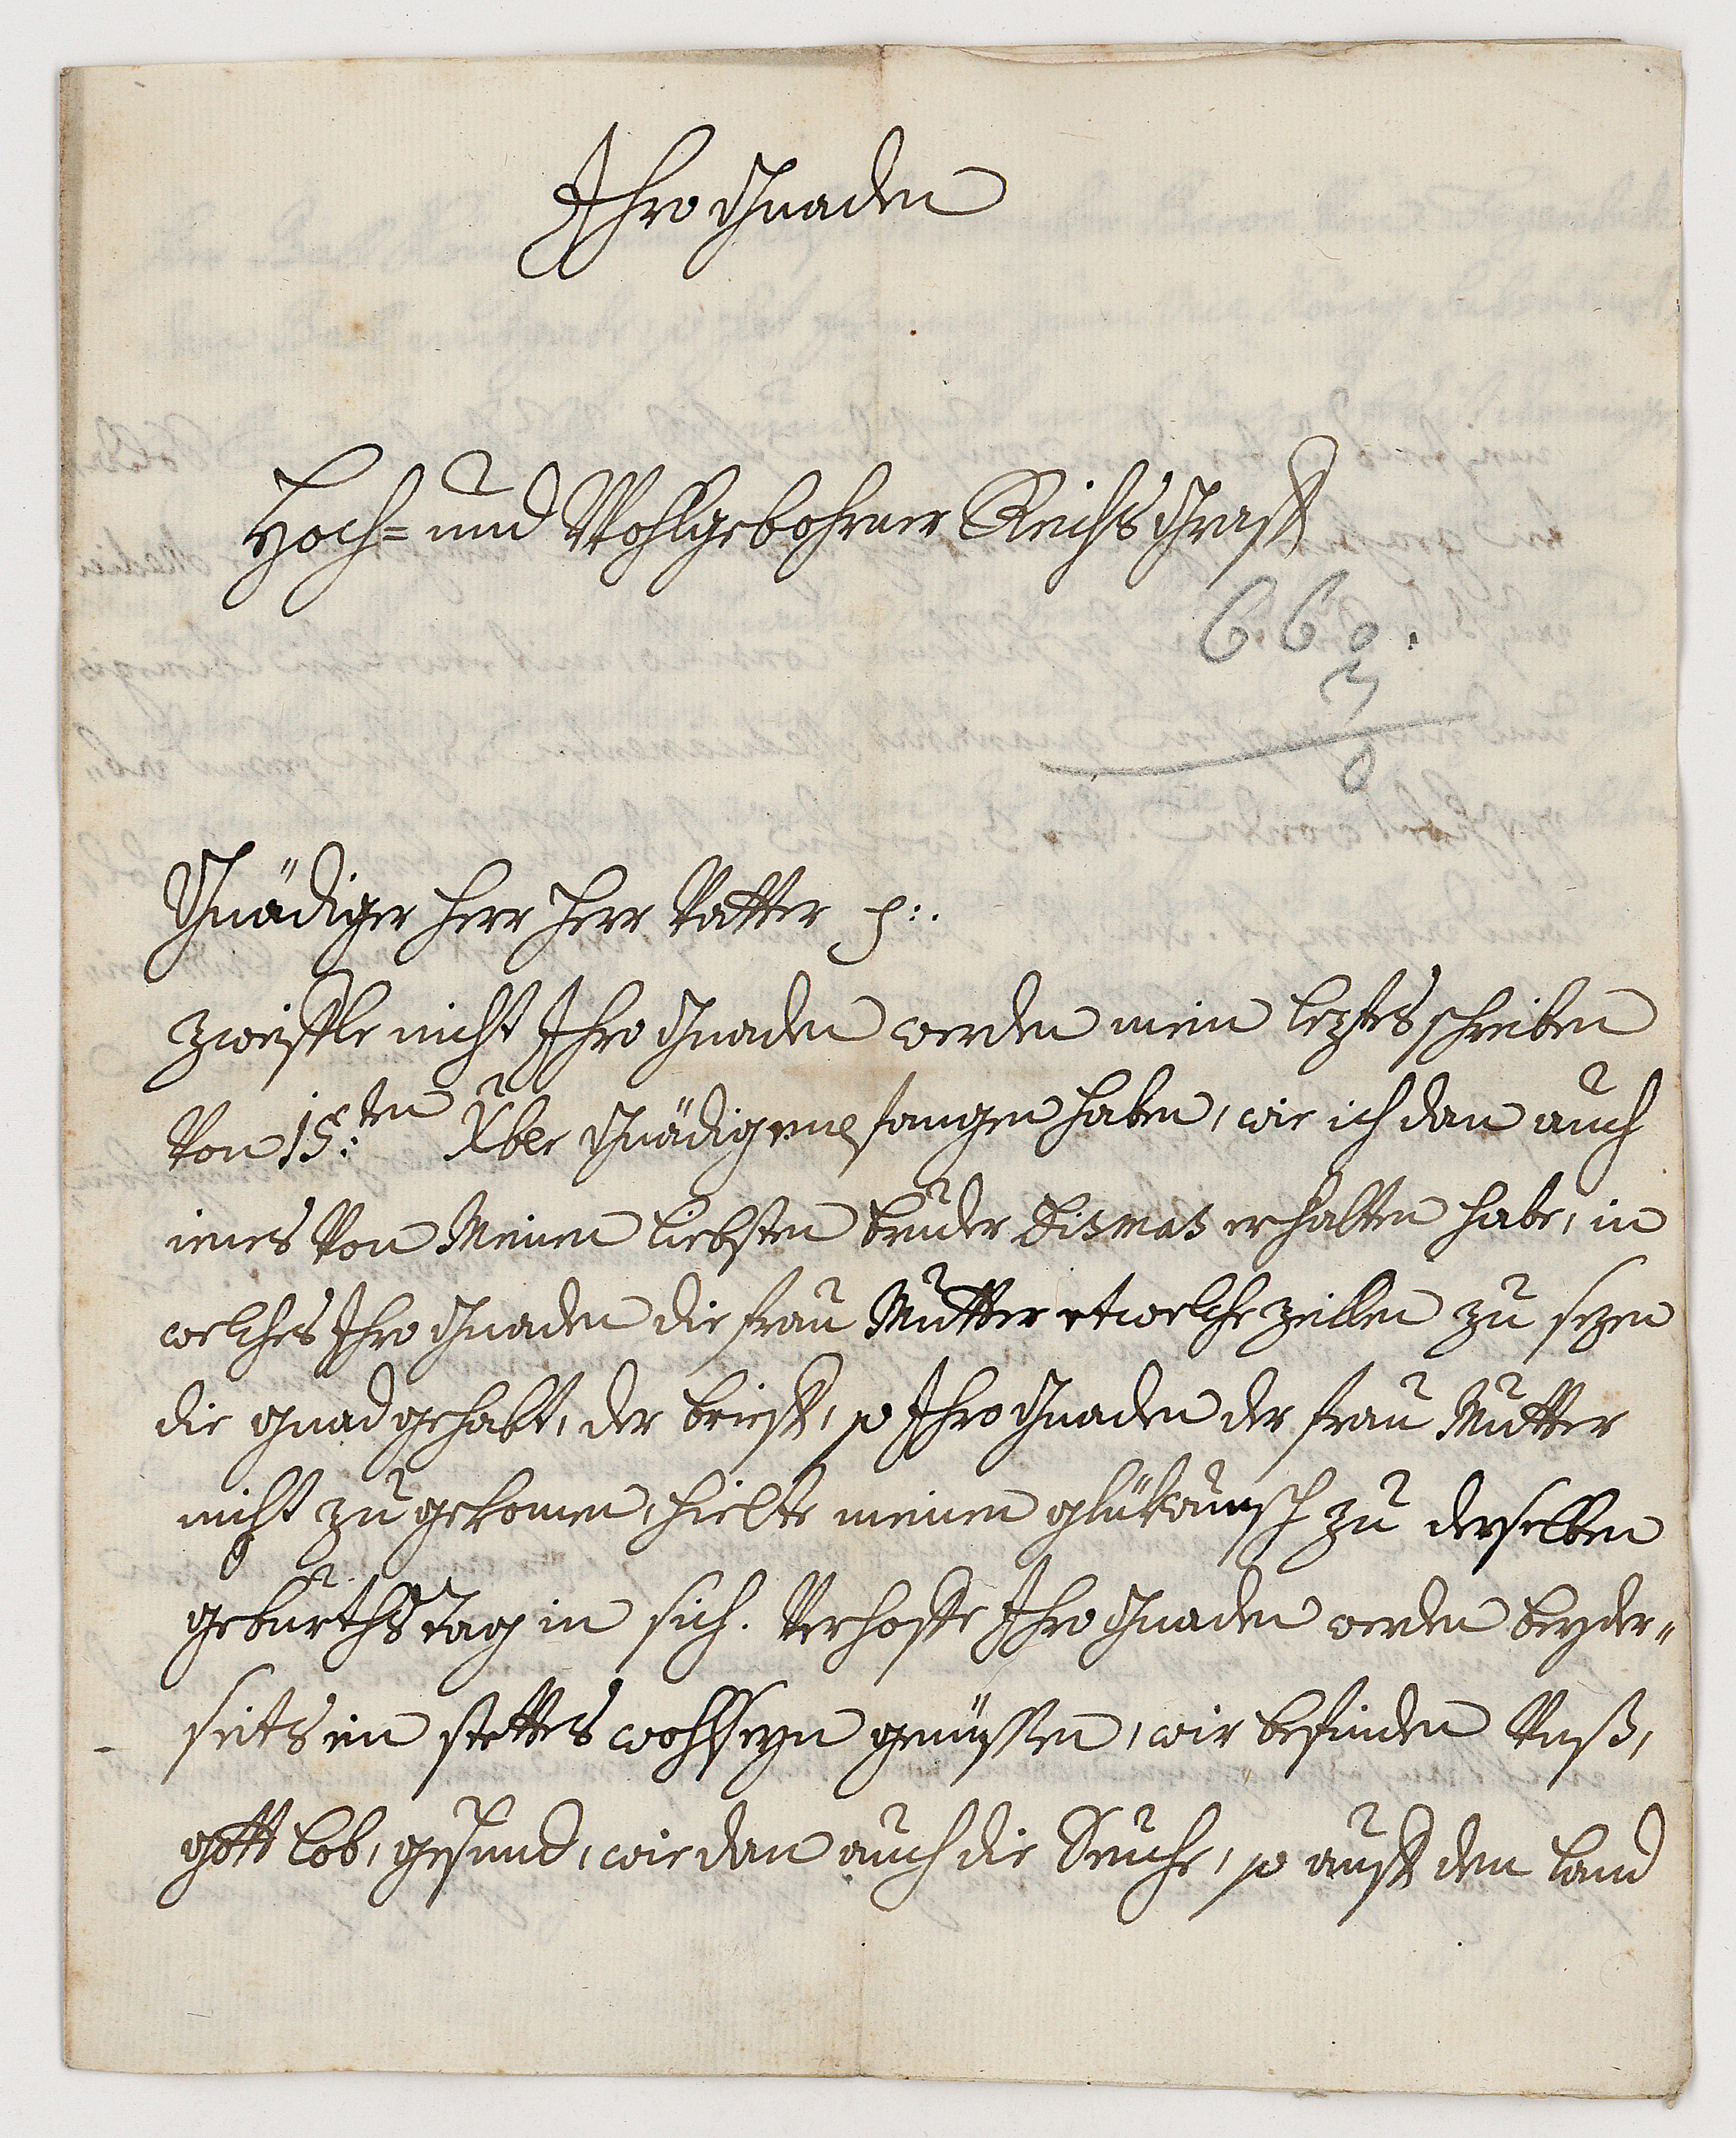 Ihro Gnaden
Hoch= und Wohlgebohrner Reichs Graff
660.
3
0
Gnädiger Herr Herr Vatter p:.
zweiffle nicht Ihro Gnaden werden mein leztes schreiben
Von 15:ten Xber Gnädig empfangen haben, wie ich dan auch
ienes Von Meinen liebsten bruder Dismas erhalten habe, in
welches Ihro Gnaden die frau Mutter etwelche zeillen zu sezen
die gnad gehabt, der brieff, so Ihro Gnaden der frau Mutter
nicht zu gekomen, hielte meinen glükwunsch zu derselben
geburths tag in sich. Verhoffe Ihro Gnaden werden beyder„
seits ein stettes wohlseyn genüssen, wir befinden Vnß,
gott lob, gesund, wie dan auch die Seuche, so auff den land